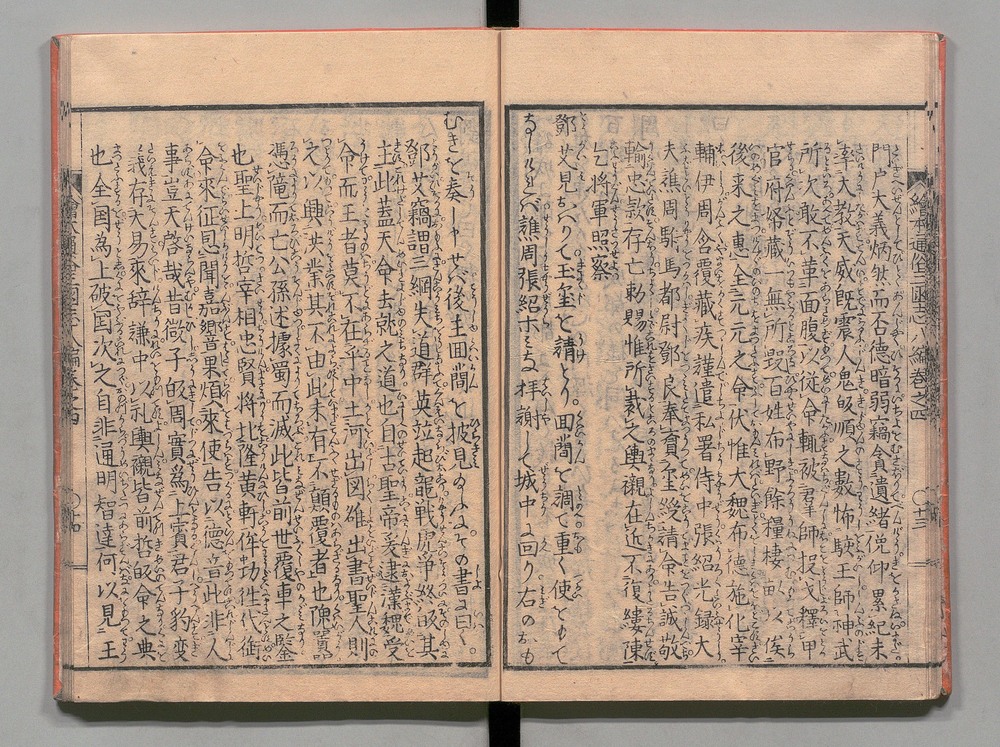 繪本通俗三國志八編巻之四 〇十三
門戸大義炳然而否德暗弱竊貪遺緒俛仰累紀未
率大教天威既震人鬼皈順之數怖駭王師神武
所次敢不革面腹以從命輙敕羣師投戈釋甲
官府帑藏一無所毀百姓布野餘糧棲畝以俟
後来之惠全元元之命伏惟大魏布德施化宰
輔伊周含覆藏疾謹遣私署侍中張紹光録大
夫譙周駙馬都尉鄧良奉賚璽綬請命告誠敬
輸忠款存亡勅賜惟所裁之輿襯在近不復縷陳
乞將軍照察
鄧艾見おハりて玉璽を請とり回簡を調て重く使をもて
なしけれバ譙周張紹ホミな拝謝して城中に回り右のおも
むきを奏しやせバ後主回簡を披見るにその書に曰く
鄧艾竊謂王綱失道群英竝起龍戦虎争終皈其
主此蓋天命去弥之道也自古聖帝爰逮漢魏受
命而王者莫不在乎中土河出図雒出書聖人則
之以興洪業其不由此未有不顛覆者也隗嚣
憑隴而亡公孫述據蜀而滅此皆前世覆車之鑒
也聖上明哲宰相忠賢將比隆黄軒侔功往代銜
命來征思聞嘉響果煩來使告以德音此非人
事豈天啓哉昔微子皈周實爲上賓君子豹変
義存大易來辞謙冲以礼輿襯皆前哲皈命之典
也全国為上破国次之自非通明智達何以見王
繪本通俗三國志八編巻之四 〇十四